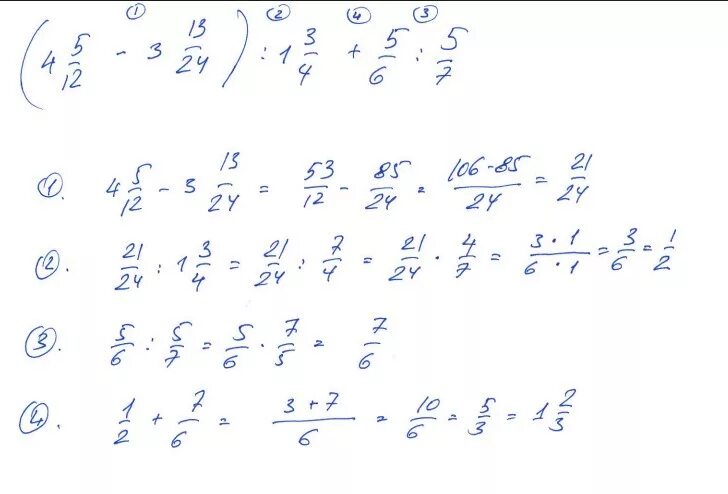 ① ② ④ ③
(4 5/12 - 3 13/24) : 1 3/4 + 5/6 : 5/7
①. 4 5/12 - 3 13/24 = 53/12 - 85/24 = (106-85)/24 = 21/24
②. 21/24 : 1 3/4 = 21/24 : 7/4 = 21/24 · 4/7 = (3·1)/(6·1) = 3/6 = 1/2
③. 5/6 : 5/7 = 5/6 · 7/5 = 7/6
④. 1/2 + 7/6 = (3+7)/6 = 10/6 = 5/3 = 1 2/3